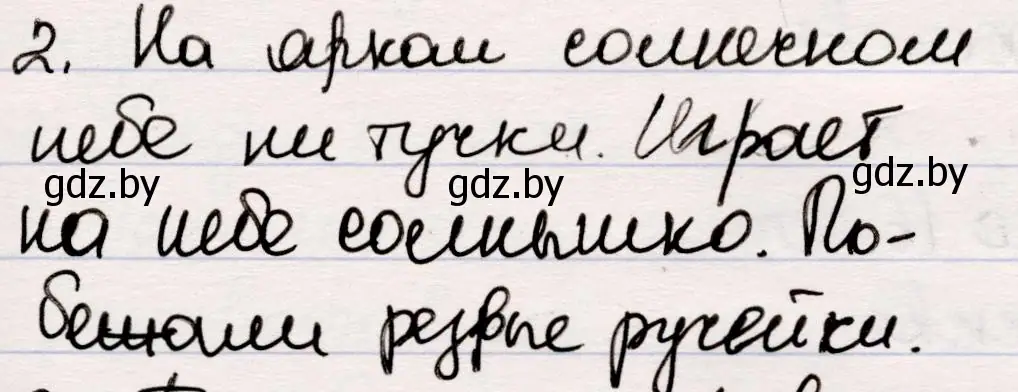 2. На ярком солнечном
небе ни тучки. Играет
gdz.by gdz.by gdz.by
на небе солнышко. По-
бежали резвые ручейки.